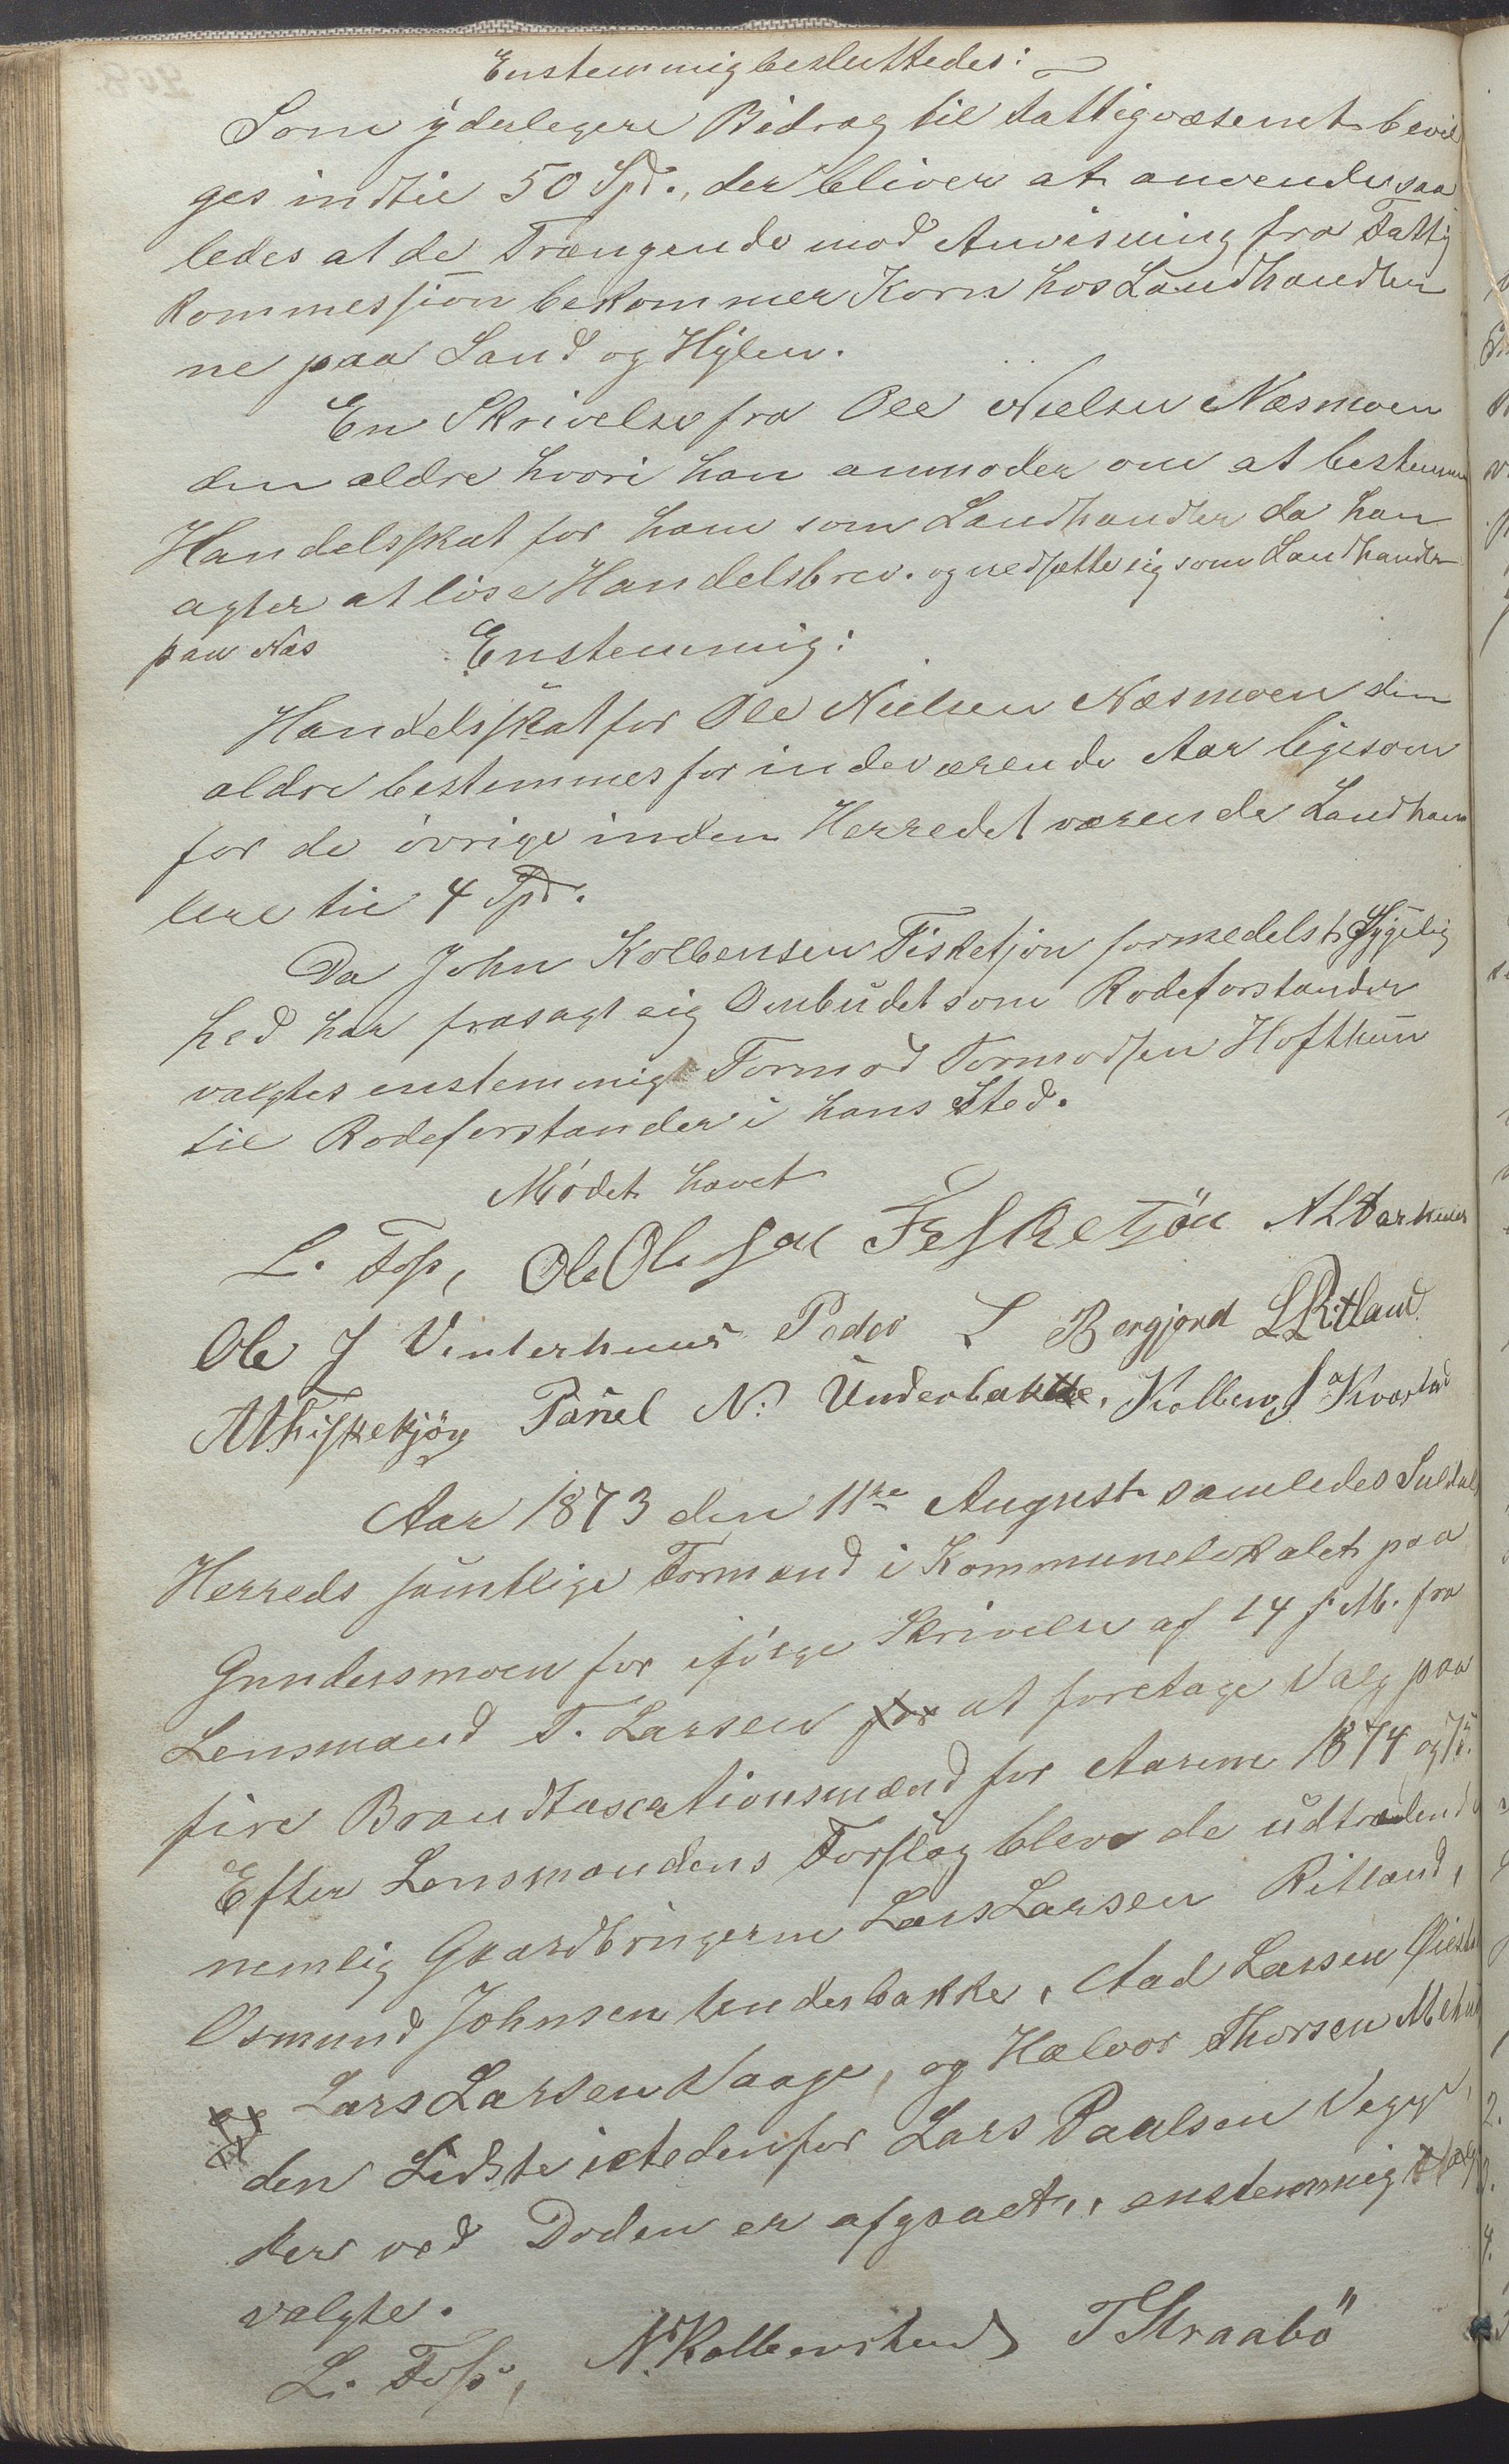 Enstemmig besluttedes:
Som yderlegere Bidrag til Fattigvæsenet bevil
ges indtil 50 Spd., der bliver at anvende saa
ledes at de Trængende mod Anvisning fra Fattig
kommessjion bekommer Korn hos Landhandler
ne paa Sand og Hylen.
En Skrivelse fra Ole Nielsen Næsmoen
den ældre hvori han anmoder om at bestemme
Handelsskat for ham som Landhandler da han
agter at løse Handelsbrev. og nedsætte sig som Landhandler
paa Næs Enstemmig:
Handelsskat for Ole Nielsen Næsmoen den
ældre bestemmes for indeværende Aar ligesom
for de øvrige inden Herredet værende Landhan
lere til 4 Spd.
Da John Kolbensen Fisketjøn formedelst Sygelig
hed har frasagt sig Ombudet som Rodeforstander
valgtes enstemmig Tormod Tormodsen Hofthun
til Rodeforstander i hans Sted.
Mødet hævet
L. Foss, Ole Olesen Fesketjøn
Ole J Vinterhuus Peder L Bergjord L L Ritland
Fisketjøn Pånel N. Underbakke, Kolben
Aar 1873 den 11te August samledes Suldals
Herreds samtlige Formænd i Kommunelokalet paa
Gundersmoen for ifølge Skrivelse af 14 f. M. fra
Lensmand T. Larsen for at foretage Valg paa
fire Brandtaxationsmænd for Aarene 1874 og 75.
Efter Lensmandens Forslag blev de udtrædende
nemlig Gaardbrugerne Lars Larsen Ritland,
Osmund Johnsen Underbakke, Aad Larsen
Lars Larsen Vaage, og Halvor Thorsen
den Sidste istedenfor Lars Paalsen Vegge,
der ved Døden er afgaaet,, enstemmig
valgte.
L. Foss, N. Kolbenstvedt T Straabø